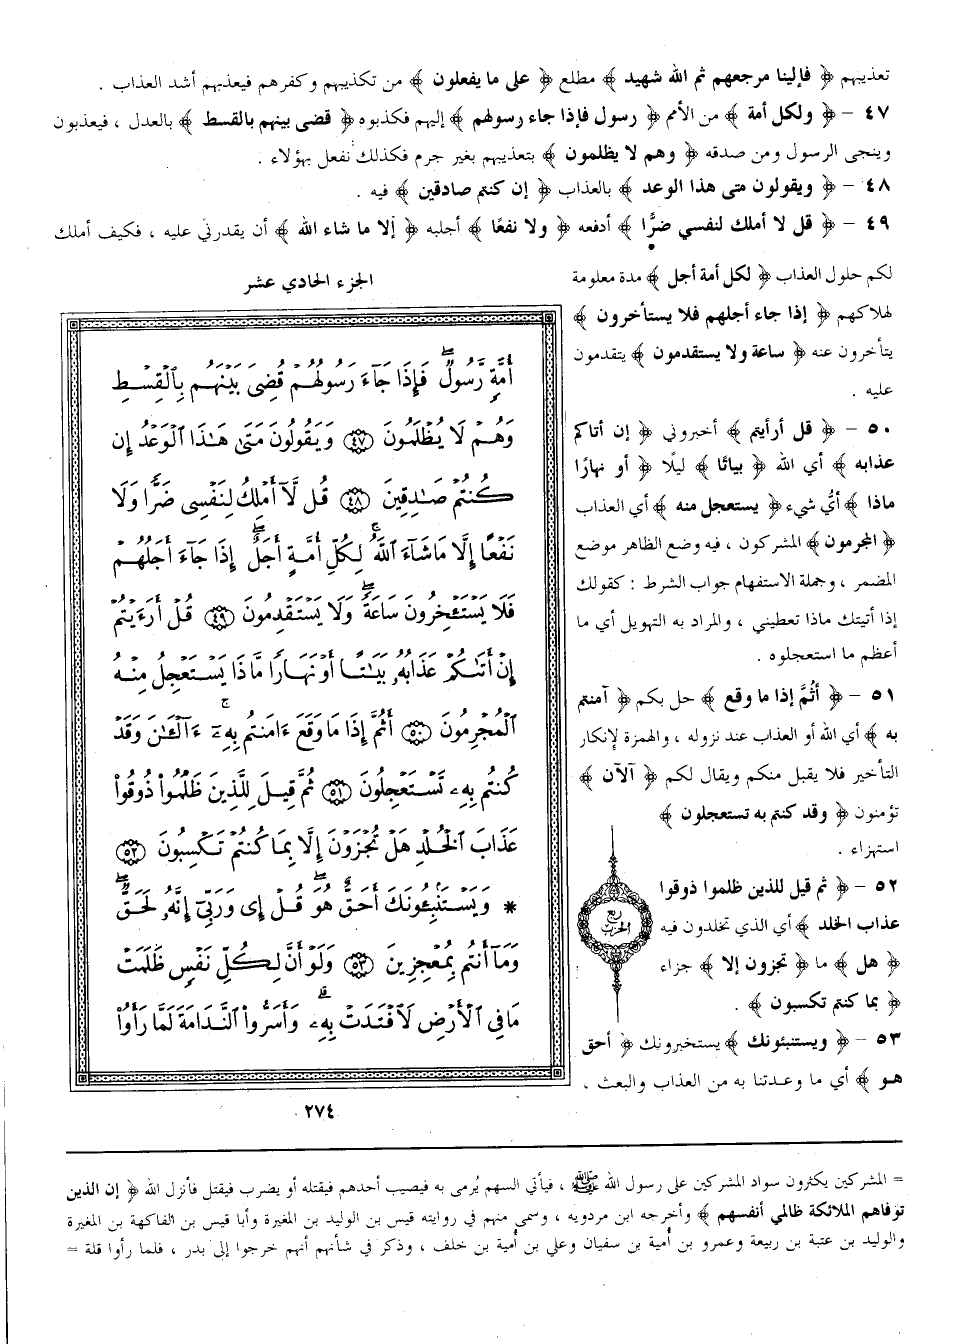 تعذيبهم ﴿ فإلينا مرجعهم ثم الله شهيد ﴾ مطلع ﴿ على ما يفعلون ﴾ من تكذيبهم وكفرهم فيعذبهم أشد العذاب .
٤٧ - ﴿ ولكل أمة ﴾ من الأمم ﴿ رسول فإذا جاء رسولهم ﴾ إليهم فكذبوه ﴿ قضى بينهم بالقسط ﴾ بالعدل ، فيعذبون
وينجى الرسول ومن صدقه ﴿ وهم لا يظلمون ﴾ بتعذيبهم بغير جرم فكذلك نفعل بهؤلاء .
٤٨ - ﴿ ويقولون متى هذا الوعد ﴾ بالعذاب ﴿ إن كنتم صادقين ﴾ فيه .
٤٩ - ﴿ قل لا أملك لنفسي ضرًّا ﴾ أدفعه ﴿ ولا نفعًا ﴾ أجلبه ﴿ إلا ما شاء الله ﴾ أن يقدرني عليه ، فكيف أملك
لكم حلول العذاب ﴿ لكل أمة أجل ﴾ مدة معلومة
لهلاكهم ﴿ إذا جاء أجلهم فلا يستأخرون ﴾
يتأخرون عنه ﴿ ساعة ولا يستقدمون ﴾ يتقدمون
عليه .
٥٠ - ﴿ قل أرأيتم ﴾ أخبروني ﴿ إن أتاكم
عذابه ﴾ أي الله ﴿ بياتًا ﴾ ليلًا ﴿ أو نهارًا
ماذا ﴾ أيُّ شيء ﴿ يستعجل منه ﴾ أي العذاب
﴿ المجرمون ﴾ المشركون ، فيه وضع الظاهر موضع
المضمر ، وجملة الاستفهام جواب الشرط : كقولك
إذا أتيتك ماذا تعطيني ، والمراد به التهويل أي ما
أعظم ما استعجلوه .
٥١ - ﴿ أثُمَّ إذا ما وقع ﴾ حل بكم ﴿ آمنتم
به ﴾ أي الله أو العذاب عند نزوله ، والهمزة لإنكار
التأخير فلا يقبل منكم ويقال لكم ﴿ آلآن ﴾
تؤمنون ﴿ وقد كنتم به تستعجلون ﴾
استهزاء .
٥٢ - ﴿ ثم قيل للذين ظلموا ذوقوا
عذاب الخلد ﴾ أي الذي تخلدون فيه
﴿ هل ﴾ ما ﴿ تجزون إلا ﴾ جزاء
﴿ بما كنتم تكسبون ﴾ .
٥٣ - ﴿ ويستنبئونك ﴾ يستخبرونك ﴿ أحق
هو ﴾ أي ما وعدتنا به من العذاب والبعث ،
ربع الحزب
الجزء الحادي عشر
أُمَّةٍ رَّسُولٌ فَإِذَا جَآءَ رَسُولُهُمْ قُضِىَ بَيْنَهُم بِٱلْقِسْطِ
وَهُمْ لَا يُظْلَمُونَ ٤٧ وَيَقُولُونَ مَتَىٰ هَٰذَا ٱلْوَعْدُ إِن
كُنتُمْ صَٰدِقِينَ ٤٨ قُل لَّآ أَمْلِكُ لِنَفْسِى ضَرًّا وَلَا
نَفْعًا إِلَّا مَا شَآءَ ٱللَّهُ لِكُلِّ أُمَّةٍ أَجَلٌ إِذَا جَآءَ أَجَلُهُمْ
فَلَا يَسْتَـْٔخِرُونَ سَاعَةً وَلَا يَسْتَقْدِمُونَ ٤٩ قُلْ أَرَءَيْتُمْ
إِنْ أَتَىٰكُمْ عَذَابُهُۥ بَيَٰتًا أَوْ نَهَارًا مَّاذَا يَسْتَعْجِلُ مِنْهُ
ٱلْمُجْرِمُونَ ٥٠ أَثُمَّ إِذَا مَا وَقَعَ ءَامَنتُم بِهِۦٓ ءَآلْـَٰٔنَ وَقَدْ
كُنتُم بِهِۦ تَسْتَعْجِلُونَ ٥١ ثُمَّ قِيلَ لِلَّذِينَ ظَلَمُوا۟ ذُوقُوا۟
عَذَابَ ٱلْخُلْدِ هَلْ تُجْزَوْنَ إِلَّا بِمَا كُنتُمْ تَكْسِبُونَ ٥٢
* وَيَسْتَنۢبِـُٔونَكَ أَحَقٌّ هُوَ قُلْ إِى وَرَبِّىٓ إِنَّهُۥ لَحَقٌّ
وَمَآ أَنتُم بِمُعْجِزِينَ ٥٣ وَلَوْ أَنَّ لِكُلِّ نَفْسٍ ظَلَمَتْ
مَا فِى ٱلْأَرْضِ لَٱفْتَدَتْ بِهِۦ وَأَسَرُّوا۟ ٱلنَّدَامَةَ لَمَّا رَأَوُا۟
٢٧٤
= المشركين يكثرون سواد المشركين على رسول الله ﷺ ، فيأتي السهم يُرمى به فيصيب أحدهم فيقتله أو يضرب فيقتل فأنزل الله ﴿ إن الذين
توفاهم الملائكة ظالمي أنفسهم ﴾ وأخرجه ابن مردويه ، وسمى منهم في روايته قيس بن الوليد بن المغيرة وأبا قيس بن الفاكهة بن المغيرة
والوليد بن عتبة بن ربيعة وعمرو بن أمية بن سفيان وعلي بن أمية بن خلف ، وذكر في شأنهم أنهم خرجوا إلى بدر ، فلما رأوا قلة =